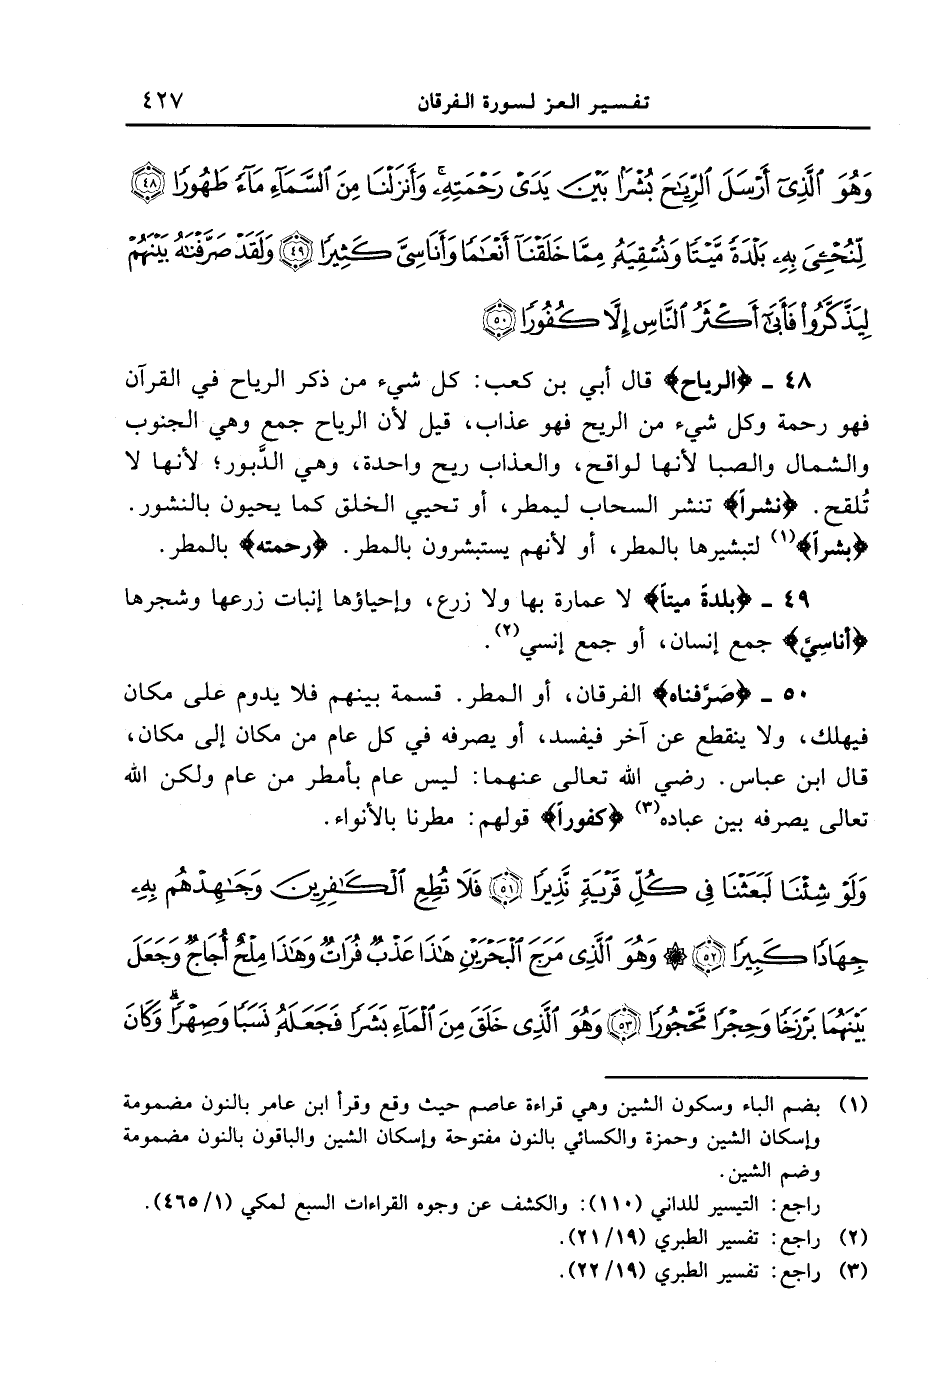 تفسير العز لسورة الفرقان ٤٢٧
وَهُوَ ٱلَّذِىٓ أَرْسَلَ ٱلرِّيَٰحَ بُشْرًۢا بَيْنَ يَدَىْ رَحْمَتِهِۦۚ وَأَنزَلْنَا مِنَ ٱلسَّمَآءِ مَآءً طَهُورًا ﴿٤٨﴾
لِّنُحْـِۧىَ بِهِۦ بَلْدَةً مَّيْتًا وَنُسْقِيَهُۥ مِمَّا خَلَقْنَآ أَنْعَٰمًا وَأَنَاسِىَّ كَثِيرًا ﴿٤٩﴾ وَلَقَدْ صَرَّفْنَٰهُ بَيْنَهُمْ
لِيَذَّكَّرُوا۟ فَأَبَىٰٓ أَكْثَرُ ٱلنَّاسِ إِلَّا كُفُورًا ﴿٥٠﴾
٤٨ ـ ﴿الرياح﴾ قال أبي بن كعب: كل شيء من ذكر الرياح في القرآن
فهو رحمة وكل شيء من الريح فهو عذاب، قيل لأن الرياح جمع وهي الجنوب
والشمال والصبا لأنها لواقح، والعذاب ريح واحدة، وهي الدَّبور؛ لأنها لا
تُلقح. ﴿نشراً﴾ تنشر السحاب ليمطر، أو تحيي الخلق كما يحيون بالنشور.
﴿بشراً﴾(١) لتبشيرها بالمطر، أو لأنهم يستبشرون بالمطر. ﴿رحمته﴾ بالمطر.
٤٩ ـ ﴿بلدةً ميتاً﴾ لا عمارة بها ولا زرع، وإحياؤها إنبات زرعها وشجرها
﴿أناسِيَّ﴾ جمع إنسان، أو جمع إنسي(٢).
٥٠ ـ ﴿صَرَّفناه﴾ الفرقان، أو المطر. قسمة بينهم فلا يدوم على مكان
فيهلك، ولا ينقطع عن آخر فيفسد، أو يصرفه في كل عام من مكان إلى مكان،
قال ابن عباس. رضي الله تعالى عنهما: ليس عام بأمطر من عام ولكن الله
تعالى يصرفه بين عباده(٣) ﴿كفوراً﴾ قولهم: مطرنا بالأنواء.
وَلَوْ شِئْنَا لَبَعَثْنَا فِى كُلِّ قَرْيَةٍ نَّذِيرًا ﴿٥١﴾ فَلَا تُطِعِ ٱلْكَٰفِرِينَ وَجَٰهِدْهُم بِهِۦ
جِهَادًا كَبِيرًا ﴿٥٢﴾ ۞ وَهُوَ ٱلَّذِى مَرَجَ ٱلْبَحْرَيْنِ هَٰذَا عَذْبٌ فُرَاتٌ وَهَٰذَا مِلْحٌ أُجَاجٌ وَجَعَلَ
بَيْنَهُمَا بَرْزَخًا وَحِجْرًا مَّحْجُورًا ﴿٥٣﴾ وَهُوَ ٱلَّذِى خَلَقَ مِنَ ٱلْمَآءِ بَشَرًا فَجَعَلَهُۥ نَسَبًا وَصِهْرًاۗ وَكَانَ
(١) بضم الباء وسكون الشين وهي قراءة عاصم حيث وقع وقرأ ابن عامر بالنون مضمومة
وإسكان الشين وحمزة والكسائي بالنون مفتوحة وإسكان الشين والباقون بالنون مضمومة
وضم الشين.
راجع: التيسير للداني (١١٠): والكشف عن وجوه القراءات السبع لمكي (٤٦٥/١).
(٢) راجع: تفسير الطبري (٢١/١٩).
(٣) راجع: تفسير الطبري (٢٢/١٩).